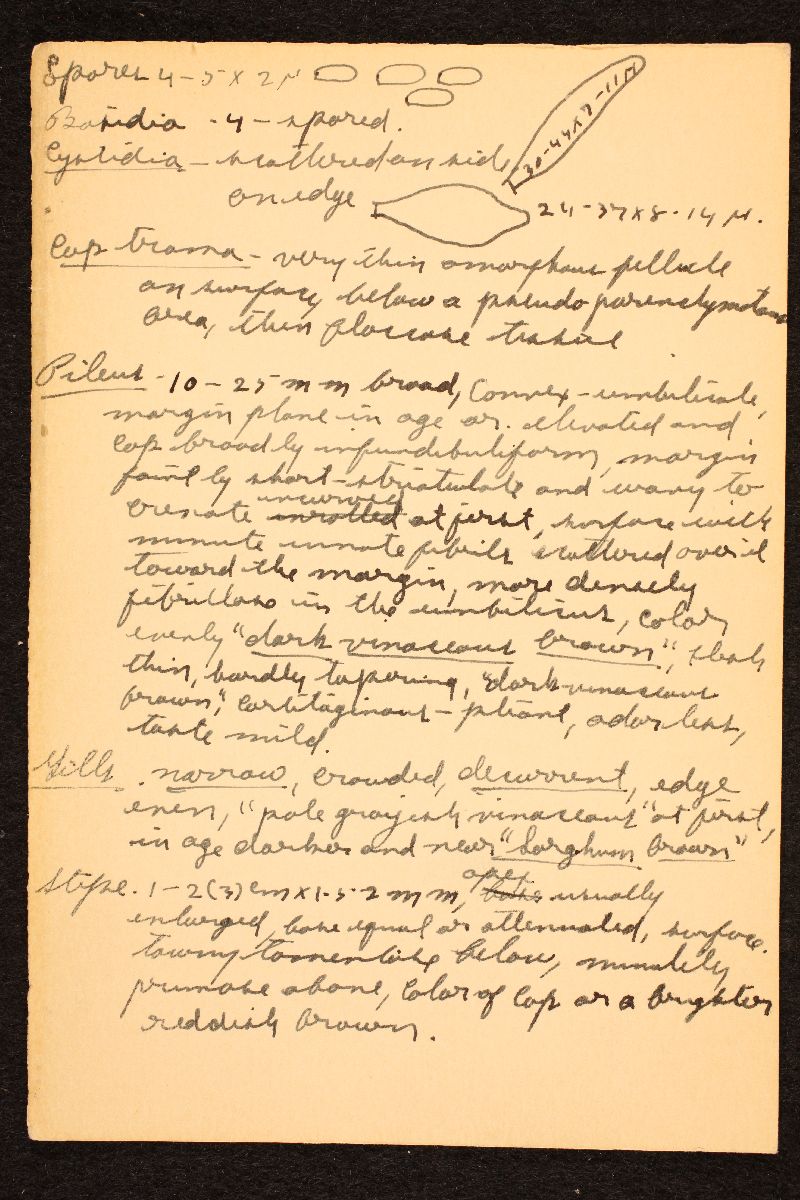 Spores 4-5 x 2 µ
Basidia - 4 - spored.
Cystidia - scattered on side 30-44 x 7-11 µ
on edge 24-37 x 8-14 µ.
Cap trama - very thin amorphous pellicle
on surface, below a pseudoparenchymatous
area, then floccose tissue
Pileus - 10-25 mm broad, convex-umbilicate,
margin plane in age or elevated and
cap broadly infundibuliform, margin
faintly short-striatulate and wavy to
crenate incurved enrolled at first, surface with
minute innate fibrils scattered over it
toward the margin, more densely
fibrillose in the umbilicus, color
evenly "dark vinaceous brown", flesh
thin, hardly tapering, "dark vinaceous
brown", cartilaginous-pliant, odorless,
taste mild.
Gills. narrow, crowded, decurrent, edge
even, "pale grayish vinaceous" at first,
in age darker and near "Sorghum brown"
Stipe. 1-2(3) cm x 1.5-2 mm, apex base usually
enlarged, base equal or attenuated, surface
tawny tomentose below, minutely
pruinose above, color of cap or a brighter
reddish brown.